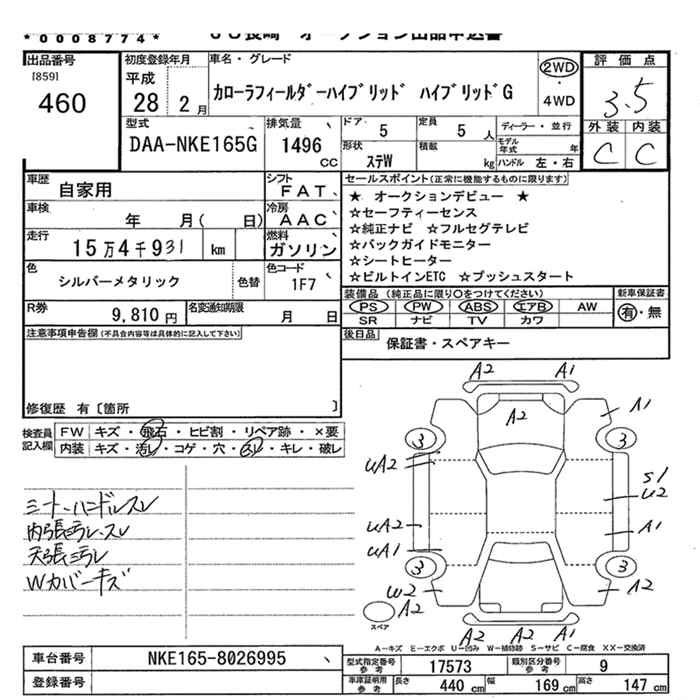 *0008774*
JU長崎 オークション出品申込書
出品番号
[859]
460
初度登録年月
平成
28 2月
車名・グレード
カローラフィールダーハイブリッド ハイブリッドG
2WD
・
4WD
評価点
3.5
外装 内装
C C
型式
DAA-NKE165G
排気量
1496
cc
ドア
5
定員
5 人
形状
ステW
積載
kg
ディーラー・並行
モデル年式
年
ハンドル 左・右
車歴
自家用
シフト
FAT
車検
年 月( 日)
冷房
AAC
走行
15万4千931 km
燃料
ガソリン
色
シルバーメタリック
色替
色コード
1F7
R券
9,810円
名変通知期限
月 日
セールスポイント(正常に機能するものに限ります)
★ オークションデビュー ★
☆セーフティーセンス
☆純正ナビ ☆フルセグテレビ
☆バックガイドモニター
☆シートヒーター
☆ビルトインETC ☆プッシュスタート
装備品 (純正品に限り○をつけてください)
PS PW ABS エアB AW
SR ナビ TV カワ
新車保証書
有・無
後日品
保証書・スペアキー
注意事項申告欄(不具合内容等は具体的に記入して下さい)
修復歴 有〔箇所 〕
検査員
記入欄
FW キズ・飛石・ヒビ割・リペア跡・×要
内装 キズ・汚レ・コゲ・穴・スレ・キレ・破レ
シート・ハンドルスレ
内張汚レ・スレ
天張汚レ
Wカバーキズ
A2 A1
A2
A1
3 3
UA2
S1
U2
UA2
A1
UA1
3 3
W2
A2
A2
スペア
A2 A2 A1
A-キズ E-エクボ U-凹み W-補修跡 S-サビ C-腐食 XX-交換済
車台番号
NKE165-8026995
登録番号
型式指定番号
参考
17573
類別区分番号
参考
9
車庫証明用
参考
長さ
440 cm
幅
169 cm
高さ
147 cm